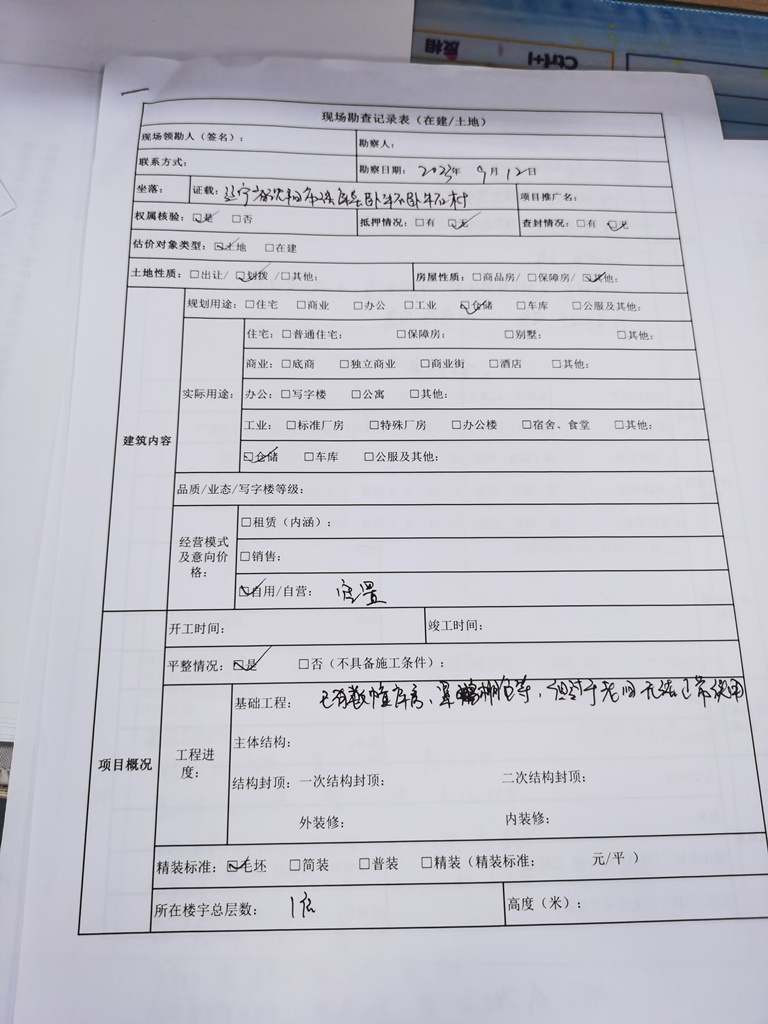 Ctrl+
现场勘查记录表（在建/土地）
现场领勘人（签名）： 勘察人：
联系方式： 勘察日期：2023年 9月12日
坐落： 证载：辽宁省沈阳市法库县卧牛石卧牛石村 项目推广名：
权属核验：☑是 ☐否 抵押情况：☐有 ☑无 查封情况：☐有 ☑无
估价对象类型：☑土地 ☐在建
土地性质：☐出让/ ☑划拨 /☐其他： 房屋性质：☐商品房/ ☐保障房/ ☑其他：
建筑内容
规划用途：☐住宅 ☐商业 ☐办公 ☐工业 ☑仓储 ☐车库 ☐公服及其他：
实际用途：
住宅：☐普通住宅； ☐保障房； ☐别墅； ☐其他：
商业：☐底商 ☐独立商业 ☐商业街 ☐酒店 ☐其他：
办公：☐写字楼 ☐公寓 ☐其他：
工业：☐标准厂房 ☐特殊厂房 ☐办公楼 ☐宿舍、食堂 ☐其他：
☑仓储 ☐车库 ☐公服及其他：
品质/业态/写字楼等级：
经营模式
及意向价
格：
☐租赁（内涵）：
☐销售：
☑自用/自营： 空置
项目概况
开工时间： 竣工时间：
平整情况：☑是 ☐否（不具备施工条件）：
工程进
度：
基础工程： 已有数幢库房、 等，但过于老旧无法正常使用
主体结构：
结构封顶：一次结构封顶： 二次结构封顶：
外装修： 内装修：
精装标准：☑毛坯 ☐简装 ☐普装 ☐精装（精装标准： 元/平 ）
所在楼宇总层数： 1层 高度（米）：